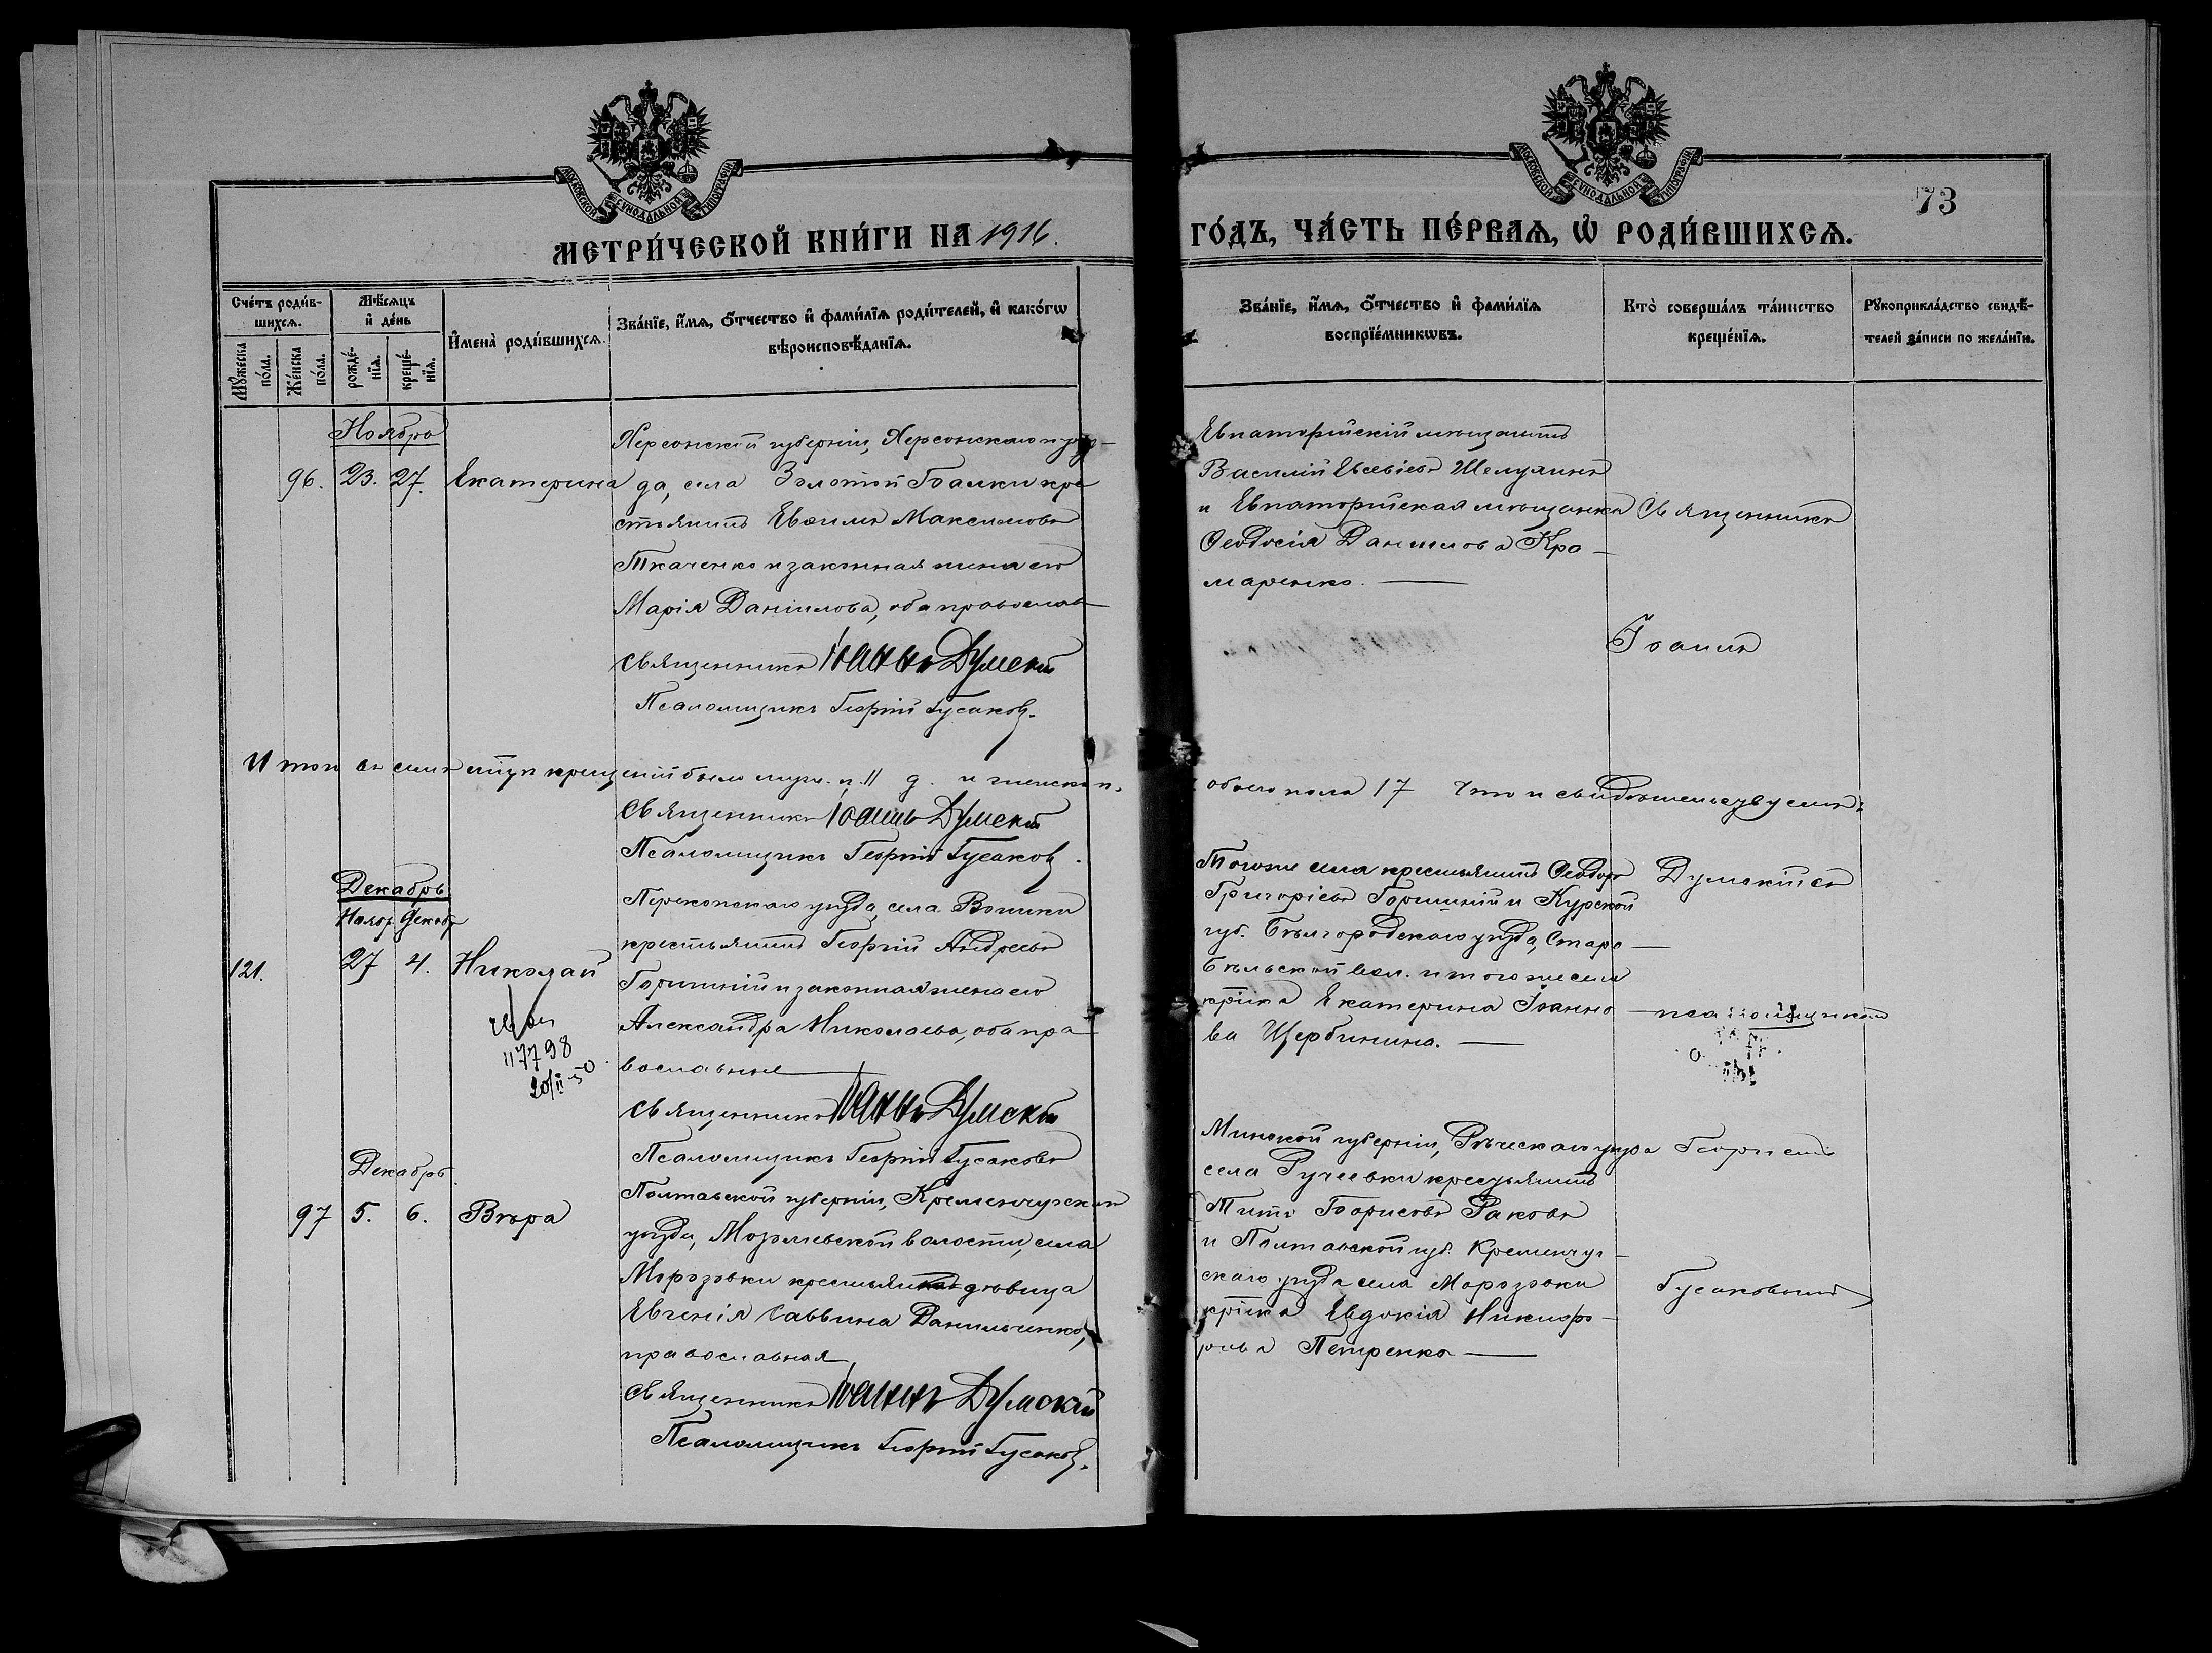 МОСКОВСКОЙ СѴНОДАЛЬНОЙ ТИПОГРАФІИ
МОСКОВСКОЙ СѴНОДАЛЬНОЙ ТИПОГРАФІИ
73
МЕТРИ́ЧЕСКОЙ КНИ́ГИ НА 1916.
ГО́ДЪ, ЧА́СТЬ ПЕ́РВАѦ, Ѡ҆ РОДИ́ВШИХСѦ.
Сче́тъ роди́в-
шихсѧ.
Мꙋ́жеска по́ла.
Же́нска по́ла.
Мѣ́сѧцъ
и҆ де́нь
рожде́-
нїѧ.
креще́-
нїѧ.
И҆мена̀ роди́вшихсѧ.
Зва́нїе, и҆́мѧ, ѻ҆́тчество и҆ фами́лїѧ роди́телей, и҆ како́гѡ
вѣроисповѣ́данїѧ.
Зва́нїе, и҆́мѧ, ѻ҆́тчество и҆ фами́лїѧ
воспрїе́мникѡвъ.
Кто̀ соверша́лъ та́инство
креще́нїѧ.
Рꙋкоприкла́дство свидѣ́-
телей за́писи по жела́нїю.
Ноябрь
96. 23. 27. Екатерина
Херсонской губерніи, Херсонскаго уѣз-
да, села Золотой Балки кре
стьянинъ Евѳимъ Максимовъ
Ткаченко и законная жена его
Марія Даніилова, оба православ
Священникъ Іоаннъ Думскій
Псаломщикъ Георгій Гусаковъ.
Евпаторійскій мѣщанинъ
Василій Евсевіевъ Шелухинъ
и Евпаторійская мѣщанка
Ѳеодосія Данилова Кра-
маренко.
Священникъ
Іоаннъ
Итого въ семъ мѣсяцѣ крещеній было муж. п. 11 д. и женска п.
обоего пола 17 Что и свидѣтельствуемъ:
Священникъ Іоаннъ Думскій
Псаломщикъ Георгій Гусаковъ.
Декабрь
Нояб. Декабр
121. 27 4. Николай
117798
20/II-50.
Перекопскаго уѣзда, села Воинки
крестьянинъ Георгій Андреевъ
Горишній и законная жена его
Александра Николаева, оба пра
вославные
Священникъ Іоаннъ Думскій
Псаломщикъ Георгій Гусаковъ
Тогоже села крестьянинъ Ѳеодоръ
Григорьевъ Горишній и Курской
губ. Бѣлгородскаго уѣзда, Старо-
Бѣльской вол. и того же села
кр-ка Екатерина Іоанно-
ва Щербинина.
Думскій съ
псаломщикомъ
Декабрь.
97 5. 6. Вѣра
Полтавской губерніи, Кременчугскаго
уѣзда, волости, села
Морозовки крестьянка дѣвица
Евгенія Саввина Данильченко,
православная
Священникъ Іоаннъ Думскій
Псаломщикъ Георгій Гусаковъ.
Минской губерніи, Рѣчицкаго уѣзда
села Ручеевки крестьянинъ
Титъ Борисовъ Раковъ
и Полтавской губ. Кременчуг-
скаго уѣзда села Морозовки
кр-ка Евдокія Никифо-
рова Петренко
Георгіемъ
Гусаковымъ